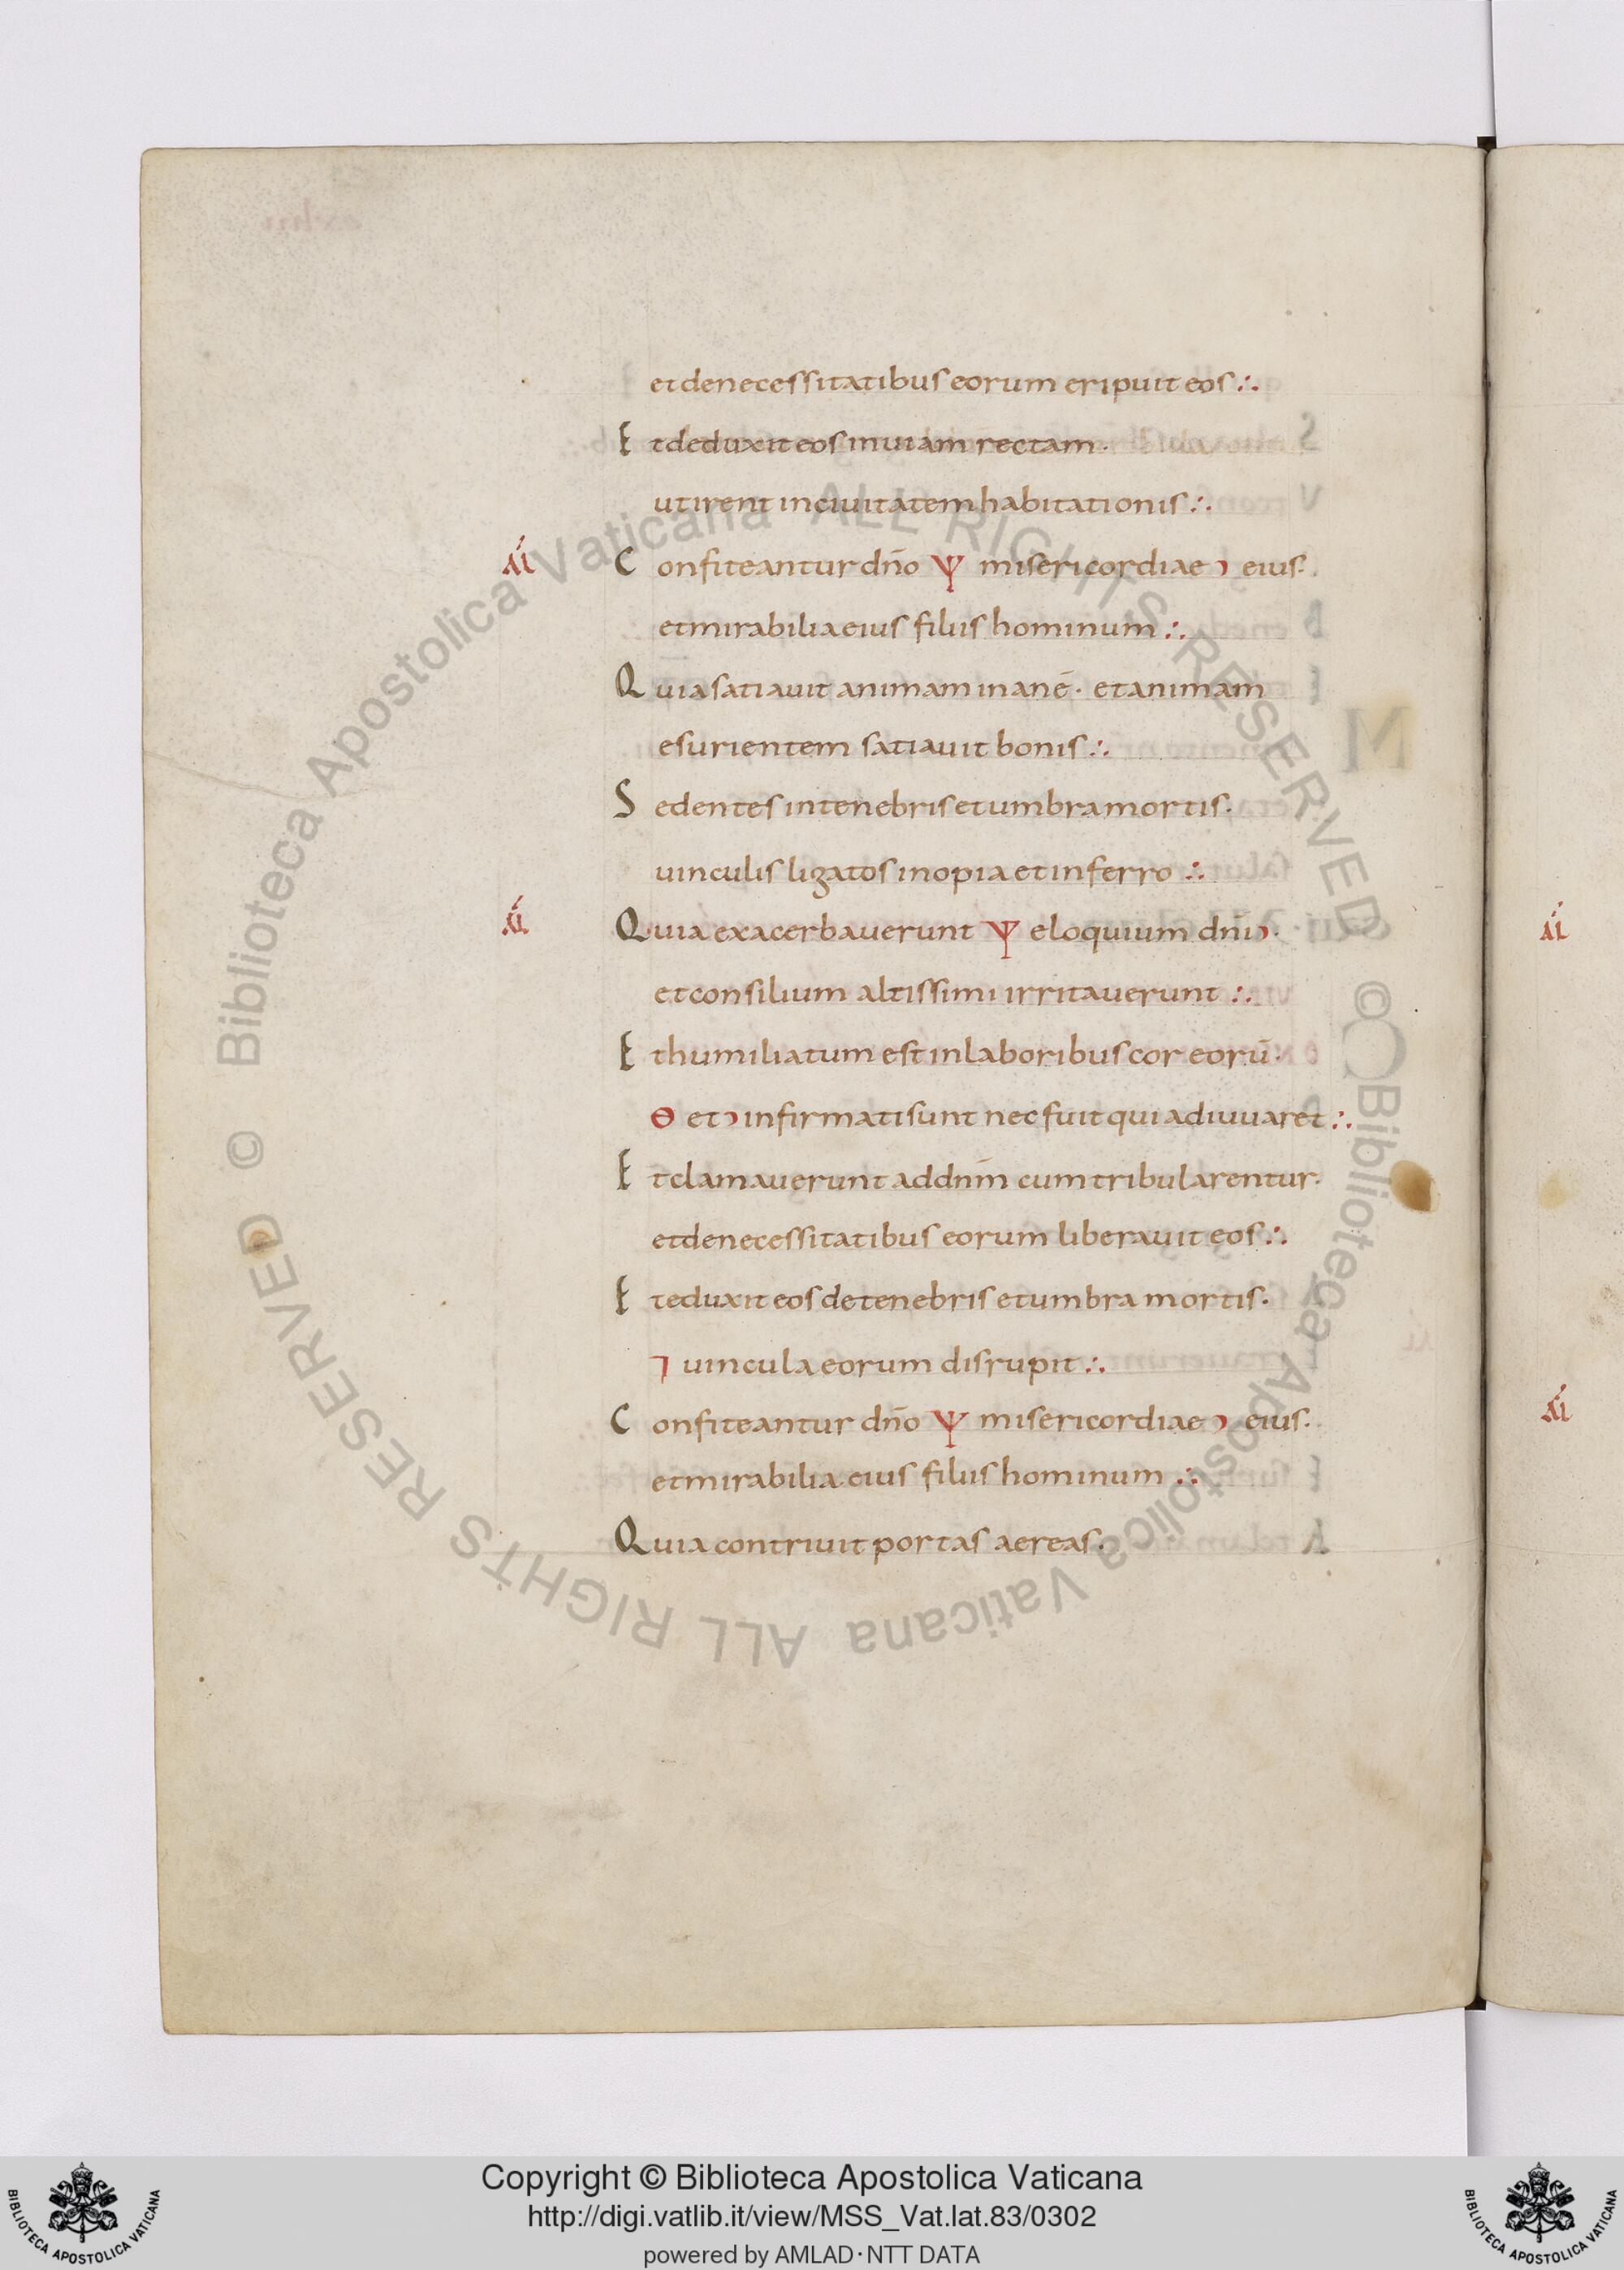 et de necessitatibus eorum eripuit eos ∴
Et deduxit eos in uiam rectam ·
ut irent in ciuitatem habitationis ∴
Confiteantur dño Ψ misericordiae · eius ·
et mirabilia eius filiis hominum ∴
Quia satiauit animam inanē · et animam
esurientem satiauit bonis ∴
Sedentes in tenebris et umbra mortis ·
uinculis ligatos inopia et in ferro ∴
Quia exacerbauerunt Ψ eloquium dñi ·
et consilium altissimi irritauerunt ∴
Et humiliatum est in laboribus cor eorū ·
Θ et infirmati sunt nec fuit qui adiuuaret ∴
Et clamauerunt ad dn̄m cum tribularentur ·
et de necessitatibus eorum liberauit eos ∴
Et eduxit eos de tenebris et umbra mortis ·
⁊ uincula eorum disrupit ∴
Confiteantur dño Ψ misericordiae · eius ·
et mirabilia eius filiis hominum ∴
Quia contriuit portas aereas ·
© Biblioteca Apostolica Vaticana ALL RIGHTS RESERVED
© Biblioteca Apostolica Vaticana ALL RIGHTS RESERVED
Copyright © Biblioteca Apostolica Vaticana
http://digi.vatlib.it/view/MSS_Vat.lat.83/0302
powered by AMLAD·NTT DATA
BIBLIOTECA APOSTOLICA VATICANA
BIBLIOTECA APOSTOLICA VATICANA